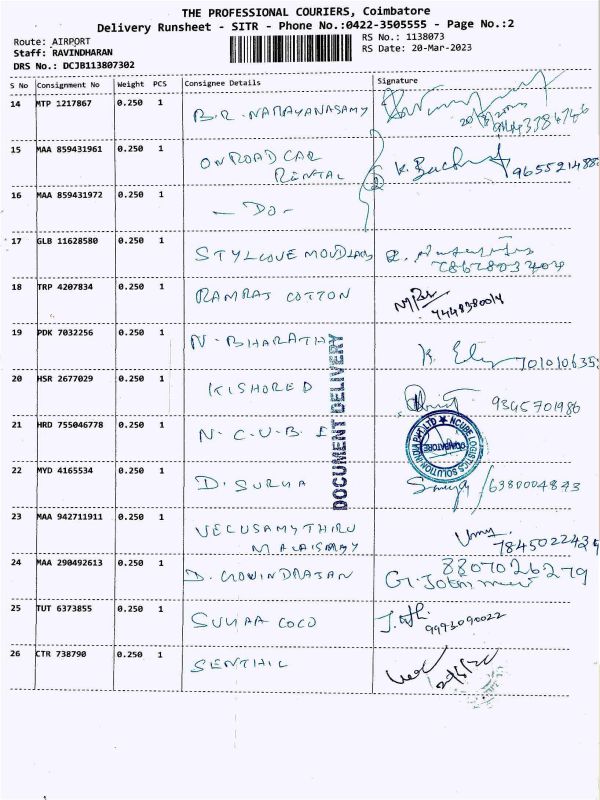 THE PROFESSIONAL COURIERS, Coimbatore
Delivery Runsheet - SITR - Phone No.:0422-3505555 - Page No.:2
Route: AIRPORT
Staff: RAVINDHARAN
DRS No.: DCJB113807302
RS No.: 1138073
RS Date: 20-Mar-2023
S No Consignment No Weight PCS Consignee Details Signature
14 MTP 1217867 0.250 1 B.R. NARAYANASAMY
15 MAA 859431961 0.250 1 ONROAD CAR
RENTAL
16 MAA 859431972 0.250 1 - DO -
17 GLB 11628580 0.250 1
18 TRP 4207834 0.250 1 RAMRAJ COTTON
19 PDK 7032256 0.250 1 N. BHARATH
20 HSR 2677029 0.250 1 KISHORED 9345701986
21 HRD 755046778 0.250 1 N.C.U.B.E
22 MYD 4165534 0.250 1 D. SURYA
23 MAA 942711911 0.250 1 VELUSAMY THIRU
7845022429
24 MAA 290492613 0.250 1 D. GOWINDRAJAN 8807026279
25 TUT 6373855 0.250 1 9993090022
26 CTR 738790 0.250 1 SENTHIL
DOCUMENT DELIVERY
NCUBE LOGISTICS SOLUTION INDIA PVT LTD
COIMBATORE